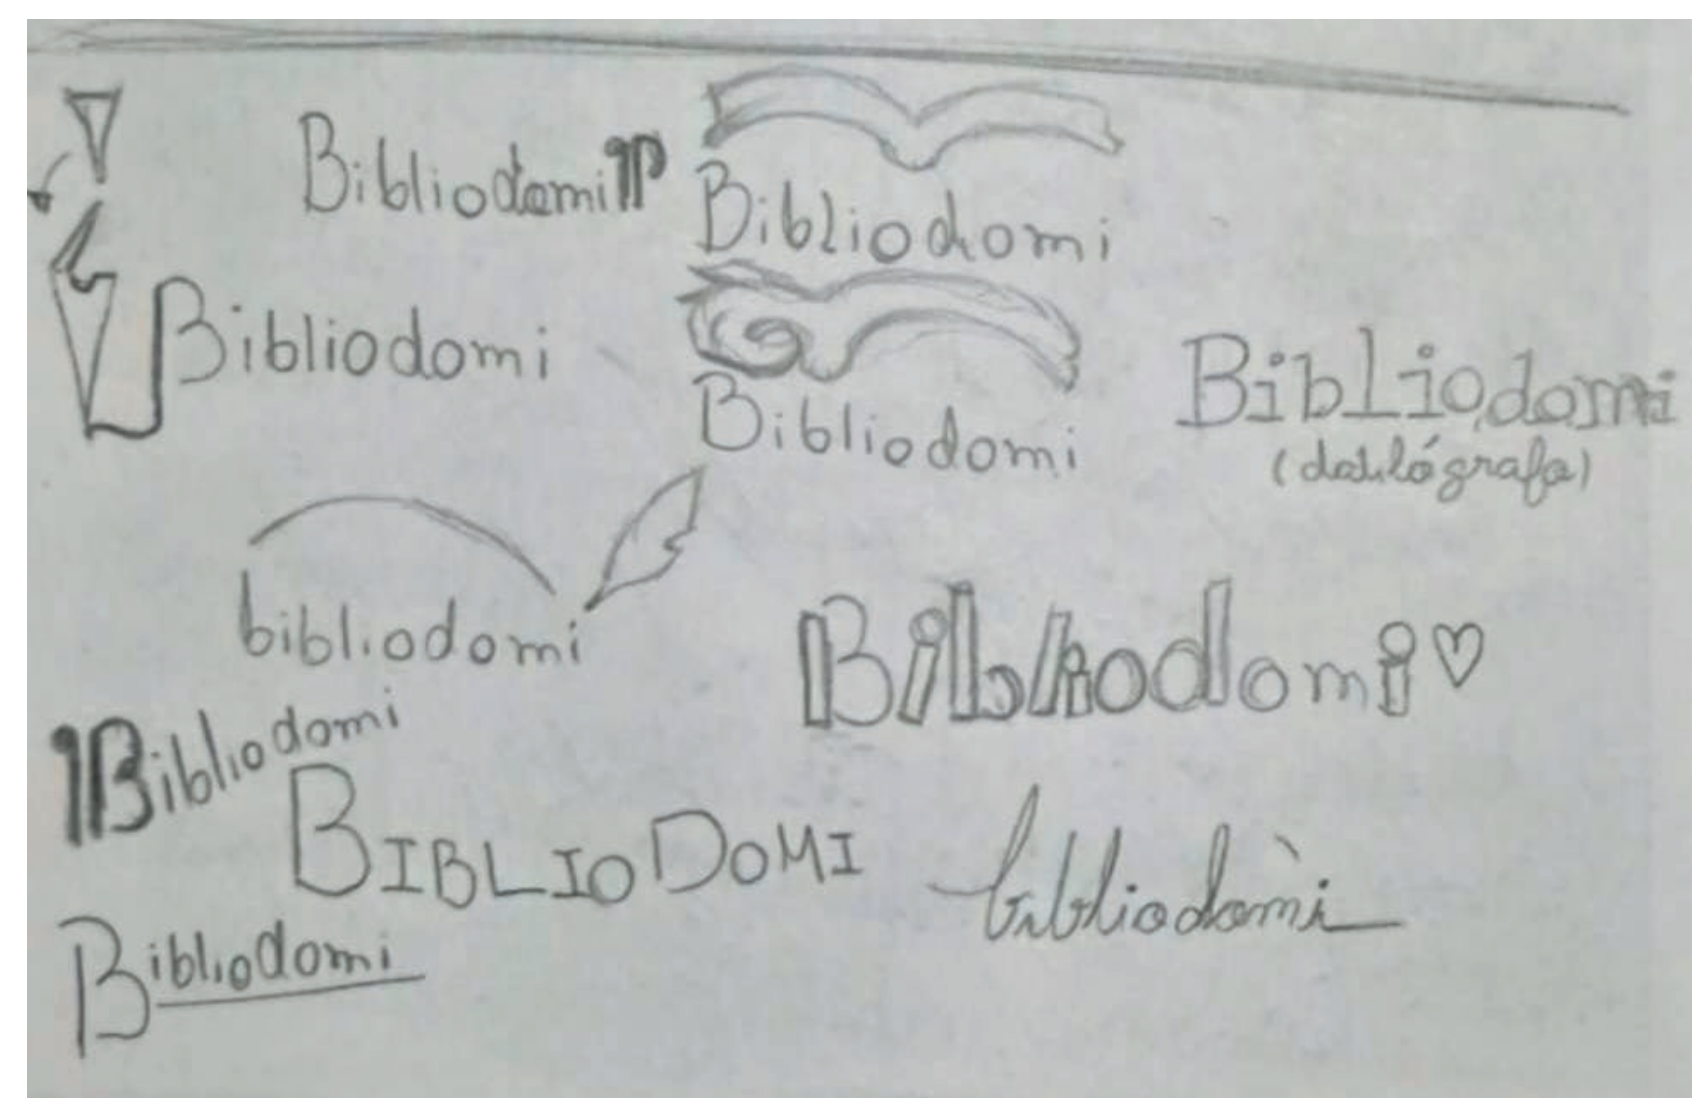 Bibliodomi
Bibliodomi
Bibliodomi
Bibliodomi
Bibliodomi
(datilógrafa)
bibliodomi
Bibliodomi
Bibliodomi
BIBLIODOMI
bibliodomi
Bibliodomi